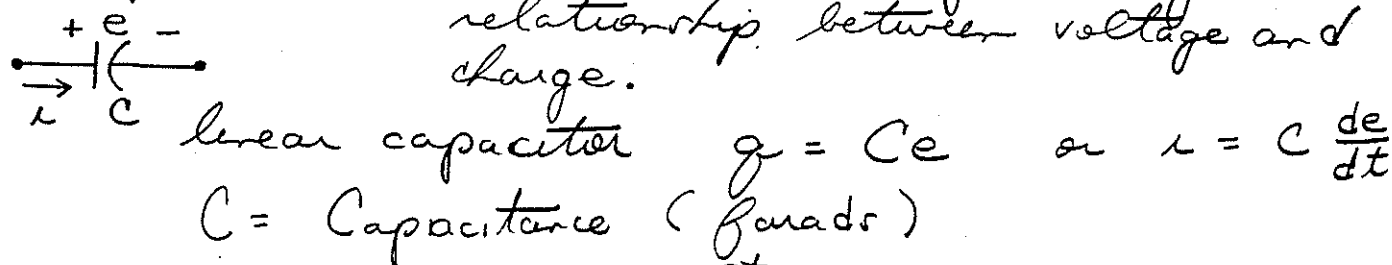 + e - relationship between voltage and
charge.
i C
linear capacitor q = Ce or i = C de/dt
C = Capacitance (farads)